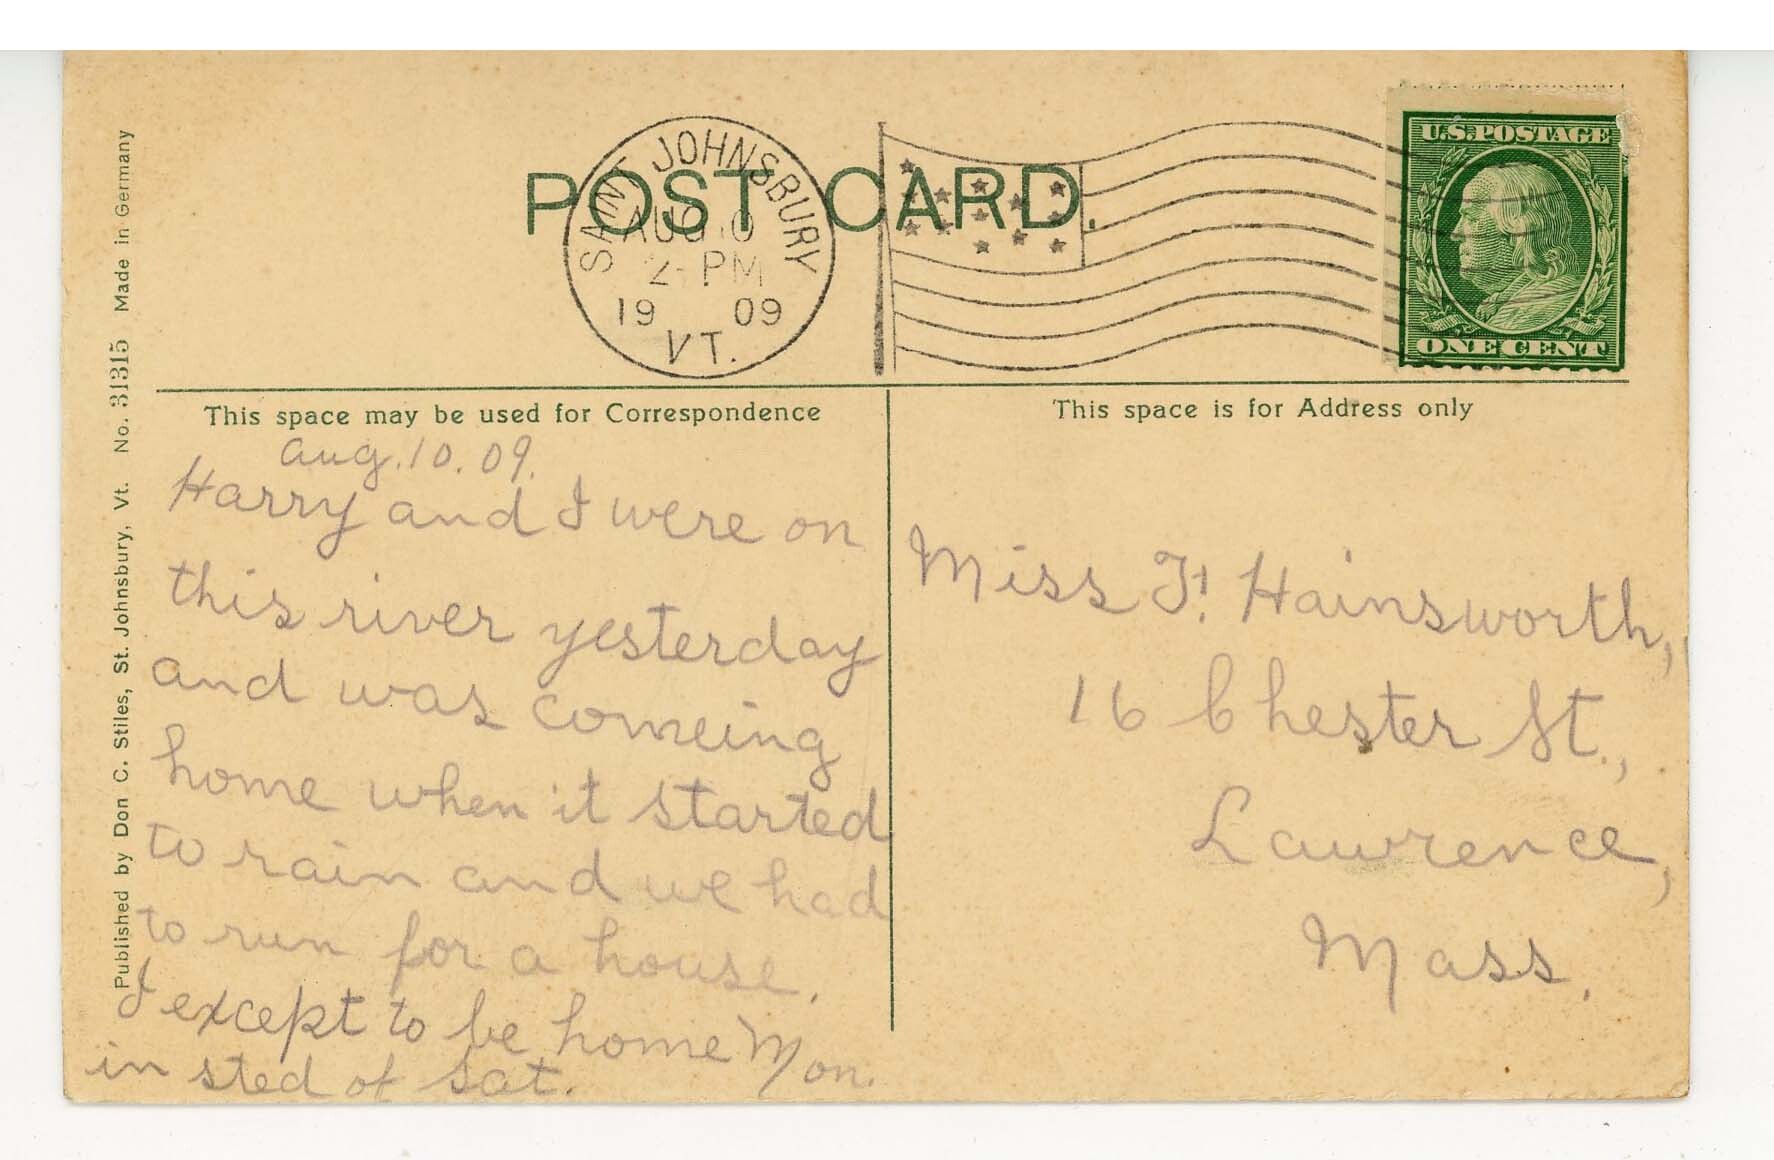 POST CARD.
SAINT JOHNSBURY
AUG 10
2- PM
19 09
VT.
U.S. POSTAGE
ONE CENT
Published by Don C. Stiles, St. Johnsbury, Vt. No. 31315 Made in Germany
This space may be used for Correspondence
Aug. 10. 09.
Harry and I were on
this river yesterday
and was comeing
home when it started
to rain and we had
to run for a house.
I except to be home Mon.
in sted of Sat.
This space is for Address only
Miss F. Hainsworth,
16 Chester St.,
Lawrence,
Mass.